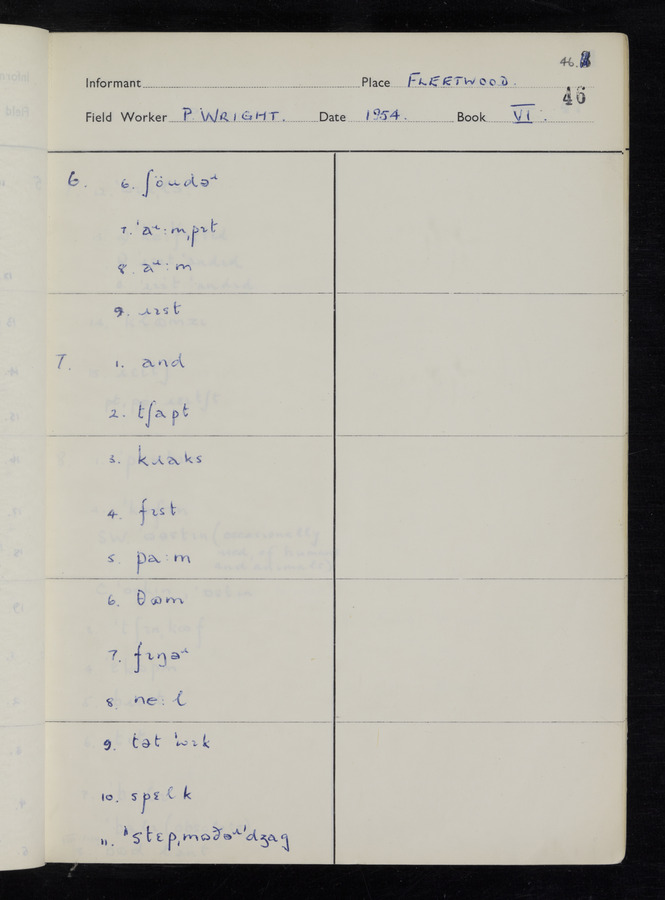 46.
Informant Place FLEETWOOD.
46
Field Worker P. WRIGHT. Date 1954. Book VI.
6. 6. ʃöudəʴ
7. ˈaʴ:mˌpɪt
8. aʴ:m
9. ɹɪst
7. 1. and
2. tʃapt
3. kɹaks
4. fɪst
5. pa:m
6. θɷm
7. fɪŋəʴ
8. ne:l
9. tət ˈwɪk
10. spɛlk
11. ˈstɛpˌmɷðəʴˈdʒag